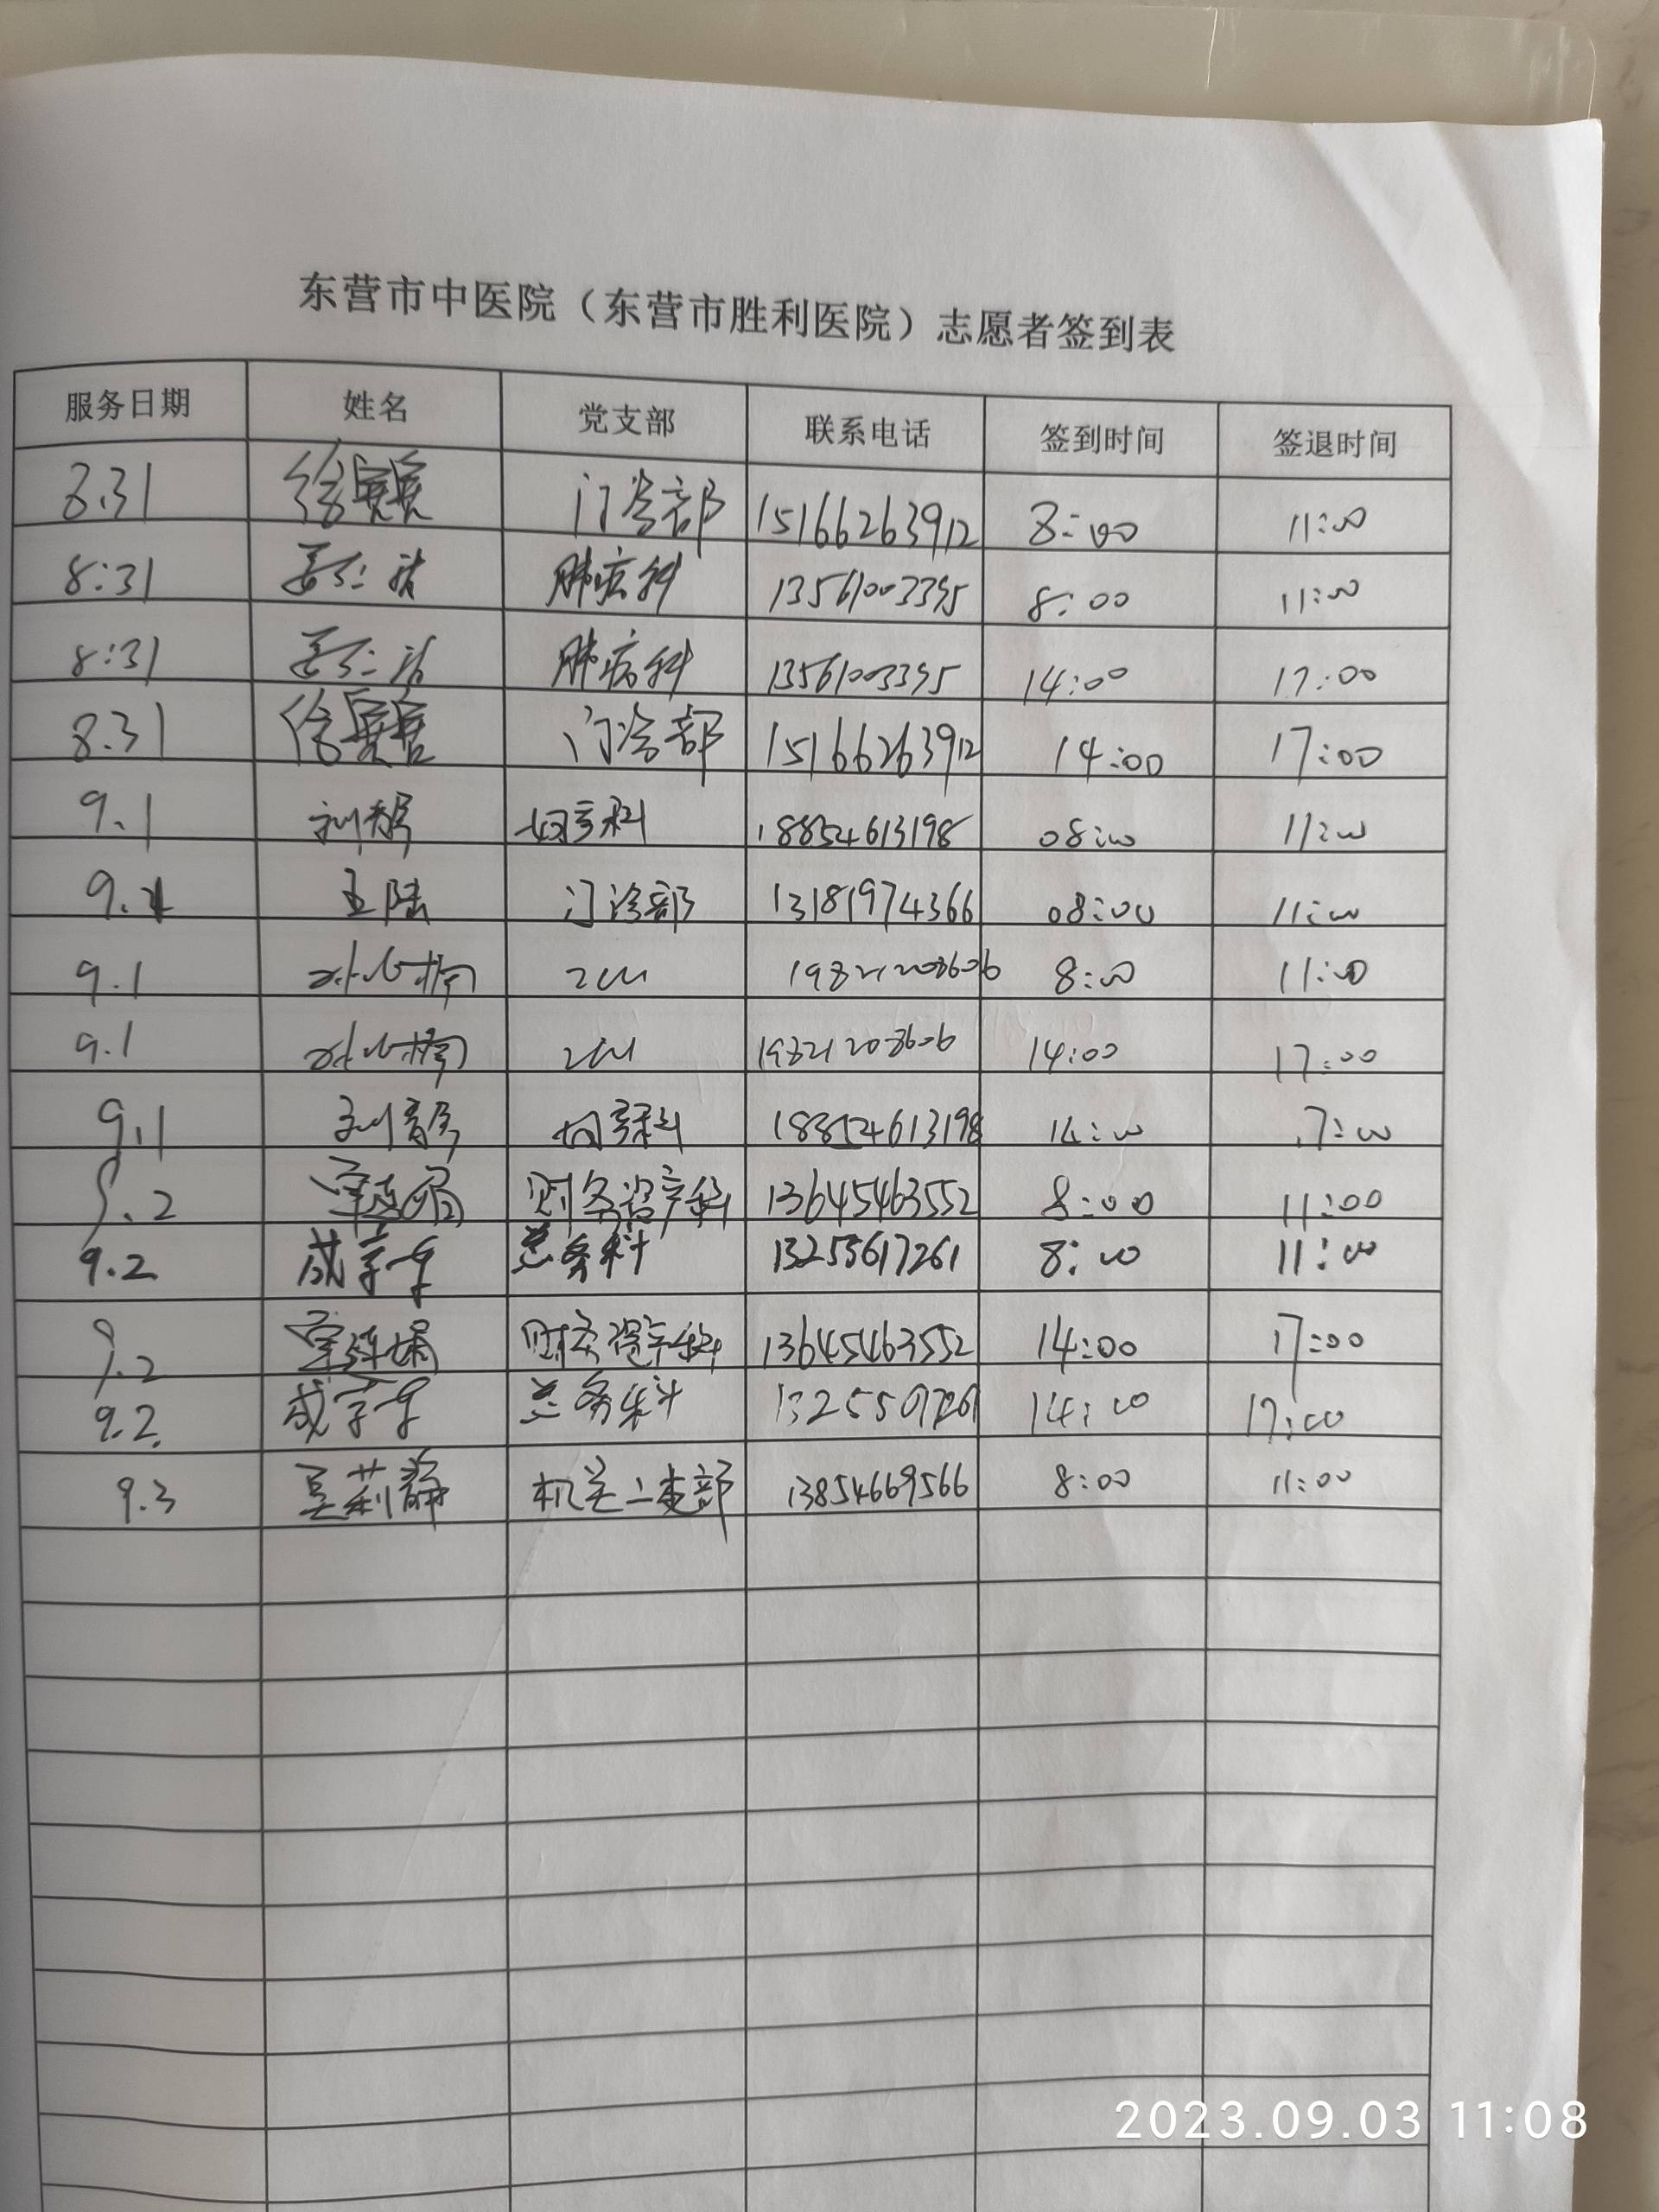 东营市中医院（东营市胜利医院）志愿者签到表
服务日期 姓名 党支部 联系电话 签到时间 签退时间
8.31 徐 门诊部 15166263912 8:00 11:00
8:31 肺病科 13561003395 8:00 11:00
8:31 肺病科 13561003395 14:00 17:00
8.31 徐 门诊部 15166263912 14:00 17:00
9.1 18854613198 08:00 11:00
9.1 王陆 门诊部 13181974366 08:00 11:00
9.1 19821208606 8:00 11:00
9.1 19821208606 14:00 17:00
9.1 18854613198 14:00 17:00
9.2 财务资产科 13645463552 8:00 11:00
9.2 成 总务科 13255617261 8:00 11:00
9.2 财务资产科 13645463552 14:00 17:00
9.2 成 总务科 14:00 17:00
9.3 吴莉静 机关二支部 13854669566 8:00 11:00
2023.09.03 11:08